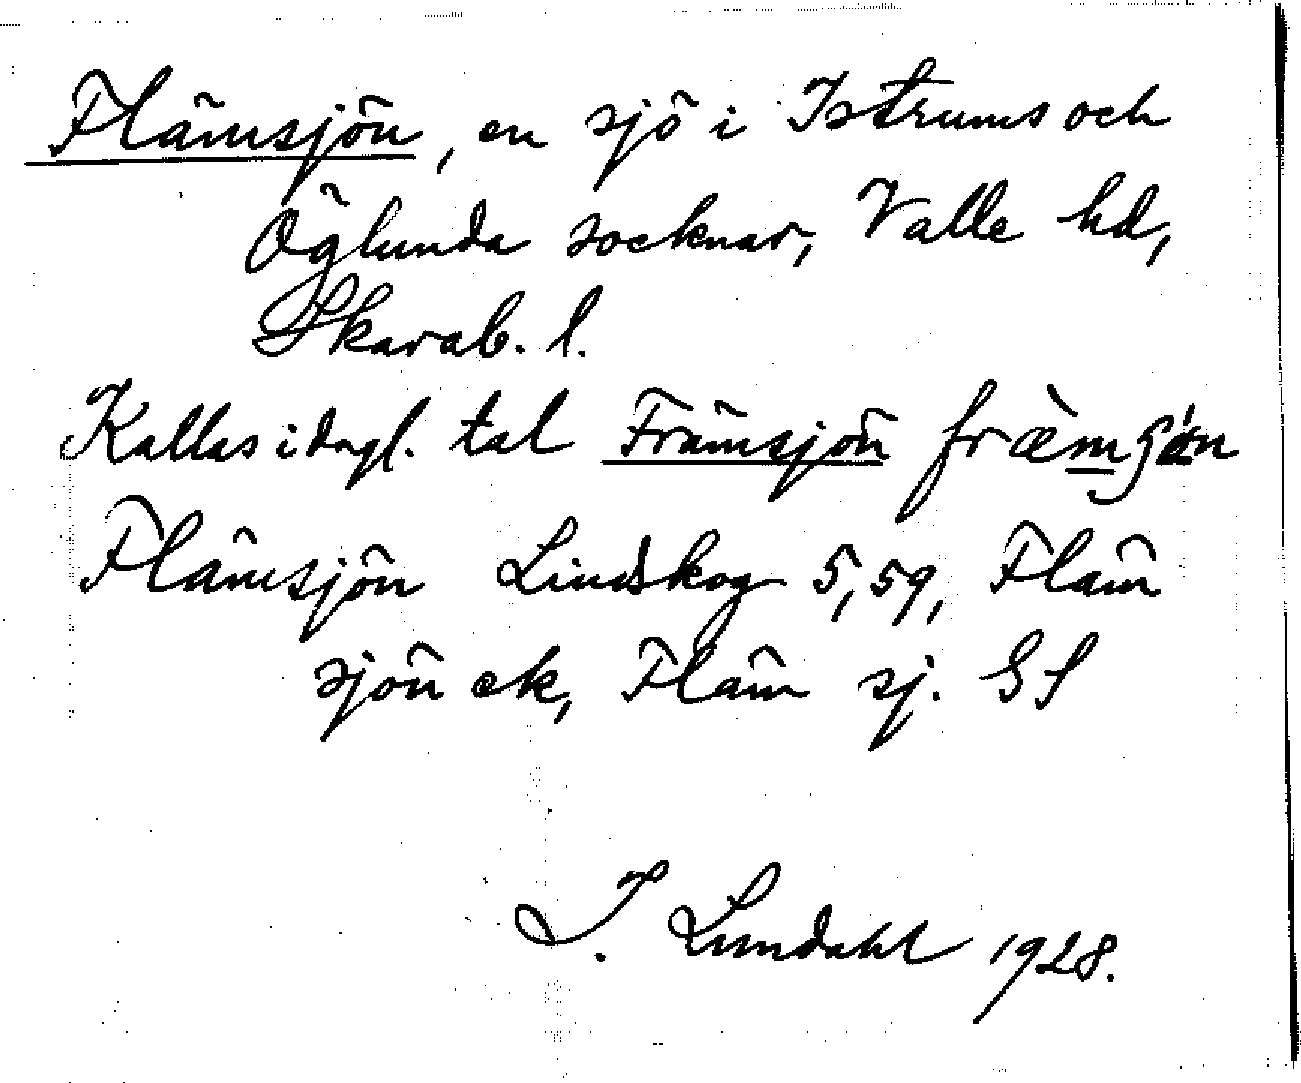 Flämsjön, en sjö i Istrums och
Öglunda socknar, Valle hd,
Skarab. l.
Kallas i dagl. tal Främsjön
Flämsjön Lindskog 5,59, Fläm
sjön ek, Fläm sj. GS
I. Lundahl 1928.